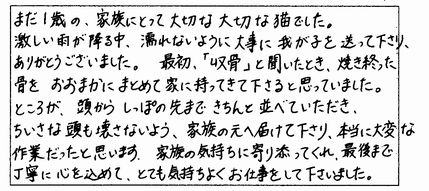 まだ1歳の、家族にとって大切な大切な猫でした。
激しい雨が降る中、濡れないように大事に我が子を送って下さり、
ありがとうございました。 最初、「収骨」と聞いたとき、焼き終った
骨をおおまかにまとめて家に持ってきて下さると思っていました。
ところが、頭からしっぽの先まできちんと並べていただき、
ちいさな頭も壊さないよう、家族の元へ届けて下り、本当に大変な
作業だったと思います。 家族の気持ちに寄り添ってくれ、最後まで
丁寧に心を込めて、とても気持ちよくお仕事をして下さいました。